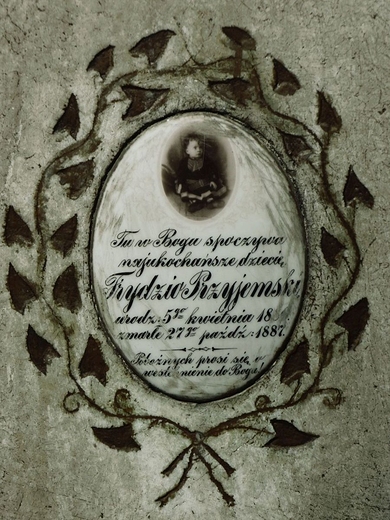 Tu w Bogu spoczywa
najukochańsze dziecię,
Frydzio Przyjemski
urodz: 5go kwietnia 18
zmarłe 27go paźdź: 1887.
Pobożnych prosi się o
westchnienie do Boga!